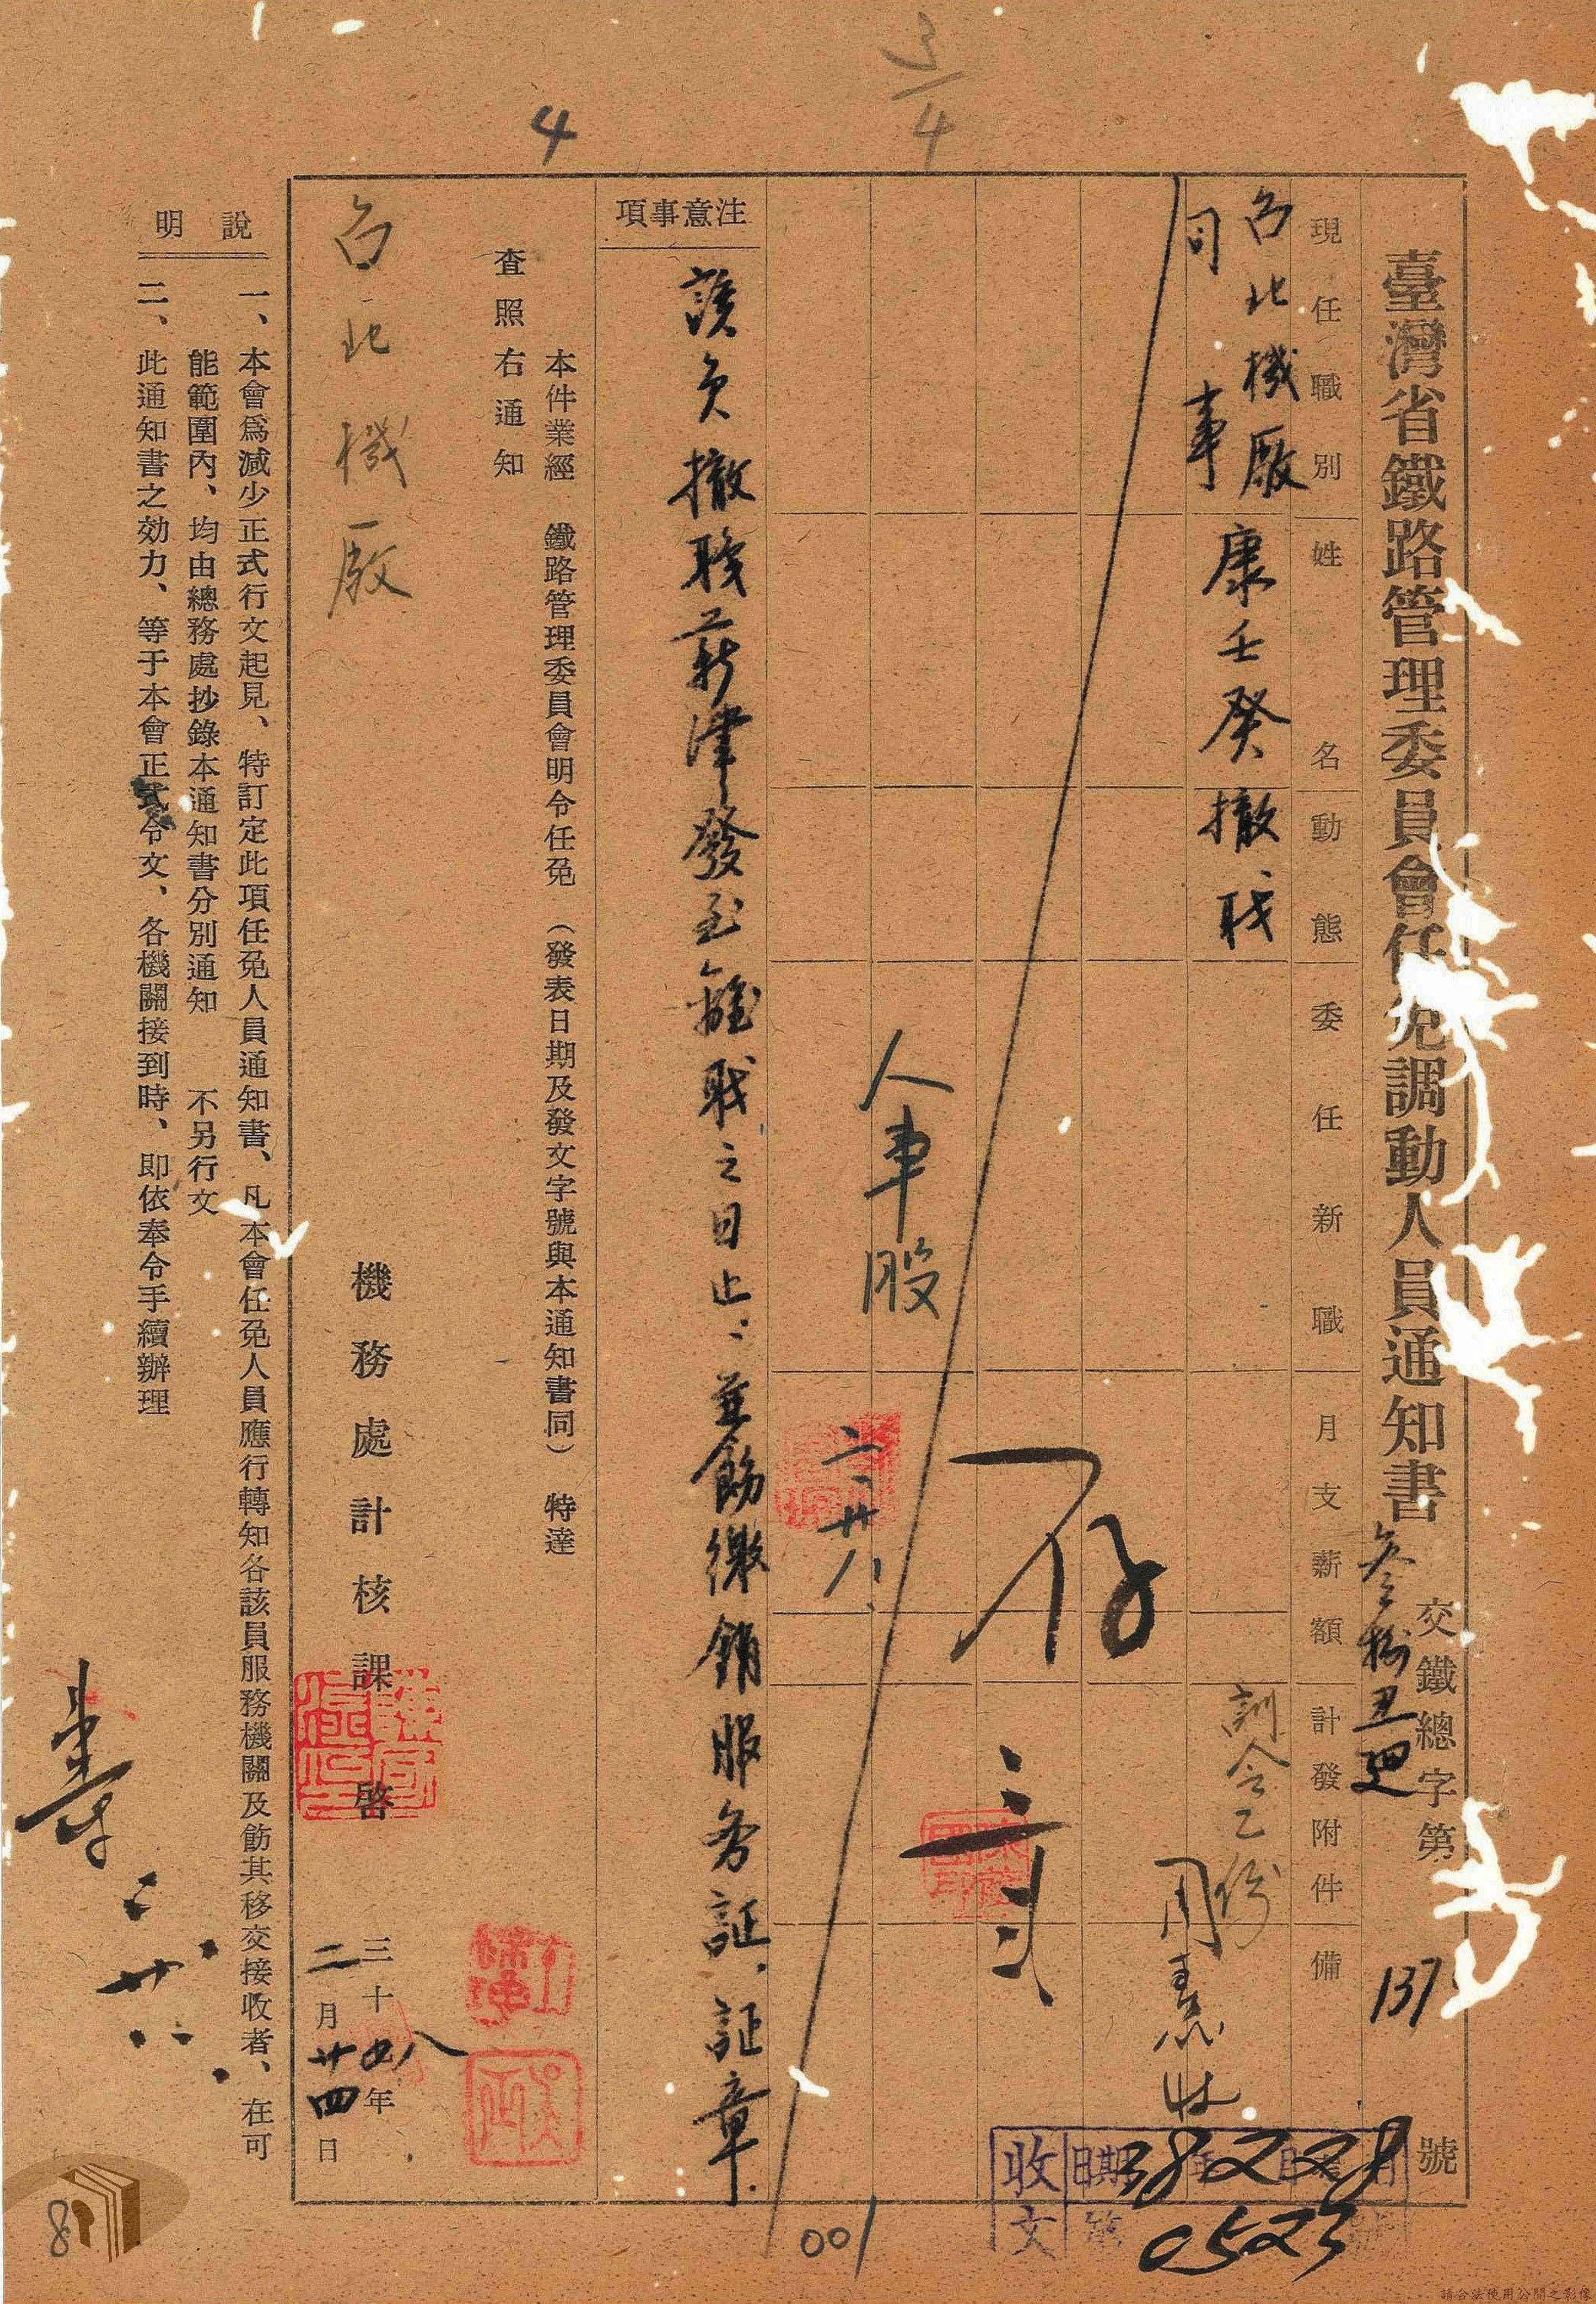 臺灣省鐵路管理委員會任免調動人員通知書
交鐵總字第
號
137
現任職別
姓名
動態
委任新職
月支薪額
計發附件
備
台北機廠
司事
康壬癸
撤職
訓令乙份
存
人事股
二、廿八、
注意事項
該員撤職薪津發至離職之日止、並飭繳銷服务証、証章
本件業經 鐵路管理委員會明令任免 (發表日期及發文字號與本通知書同) 特達
查照右通知
台北機廠
機務處計核課啓
三十八年
二月廿四日
說明
一、本會爲減少正式行文起見、特訂定此項任免人員通知書、凡本會任免人員應行轉知各該員服務機關及飭其移交接收者、在可
能範圍內、均由總務處抄錄本通知書分別通知 不另行文
二、此通知書之効力、等于本會正式令文、各機關接到時、即依奉令手續辦理
收文
日期
38228
0523
001
3/4
4
8
請合法使用公開之影像